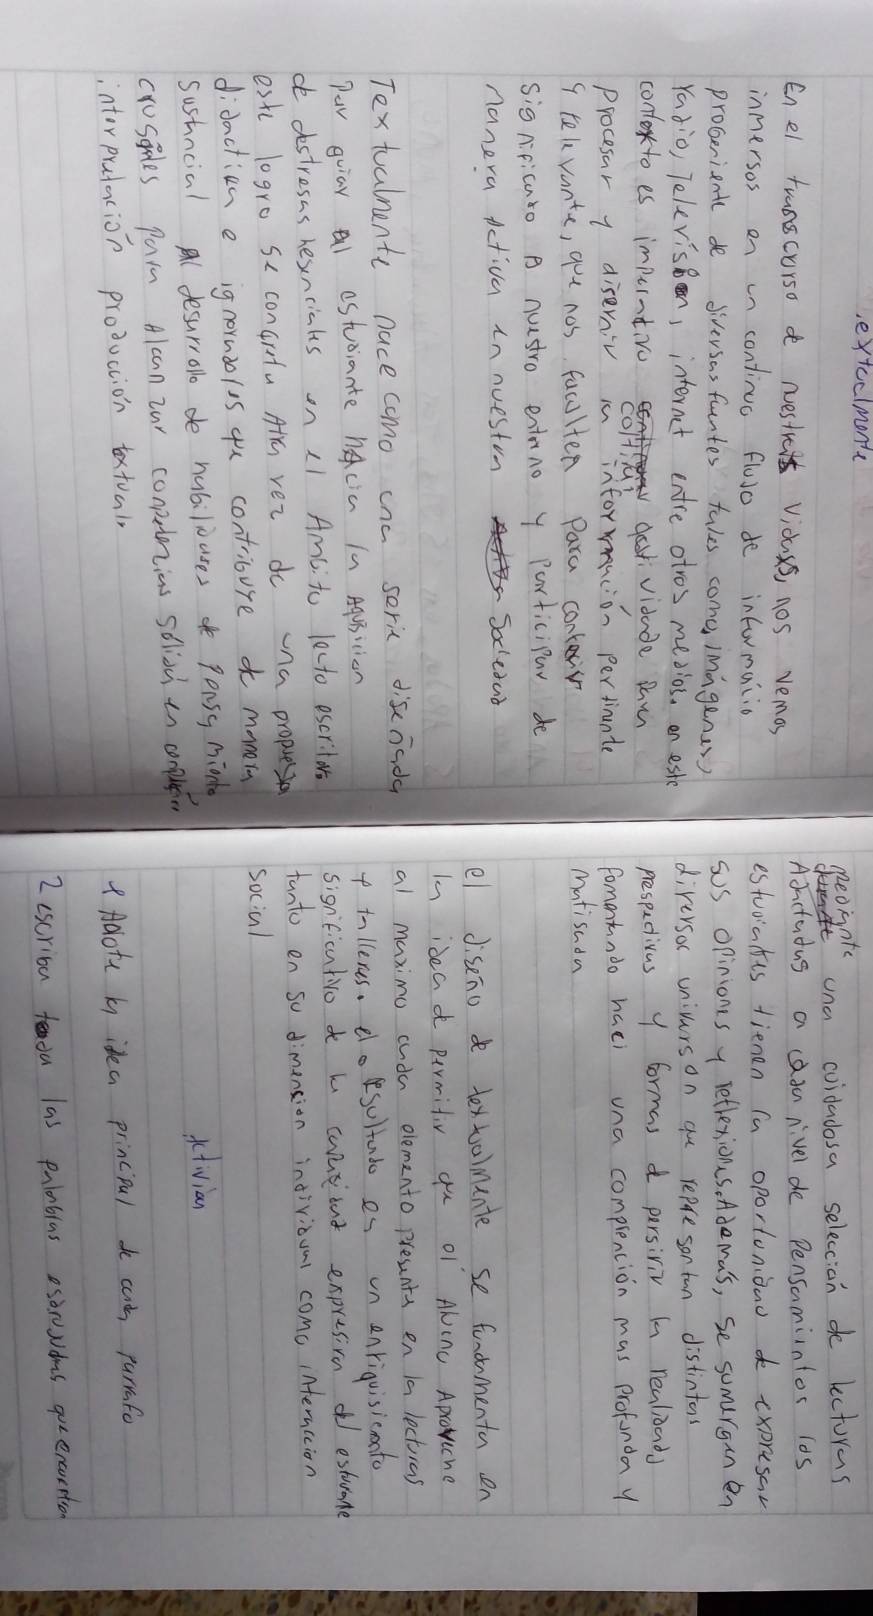 .extualmente
En el transcurso de nuestras vidas, nos vemos
inmersos en un continuo flujo de informacio
probeniente de diversas fuentes tales como, imágenes,
radio, Televisión, internet entre otros medios. en este
contexto es imperativo cultivar
procesar y disernir la información pertinente
y relevante, que nos faculten para
significado a nuestro entorno y participar de
manera activa en nuestra Sociedad
Textualmente nace como una serie diseñada
Par guiar al estudiante hacia la Aquisicion
de destresas en el Ambito lecto escritor
este logro se concreta Atra vez de una propuesta
didactica e que contribuye de manera
Sustancial al desarrollo de habilidades de Pensamiento
cruciales para Alcanzar competencias sólida en
interpretación producción textual.
Mediante una cuidadosa selección de lecturas
Adactadas a cada nivel de Pensamientos los
estudiantes tienen la oportunidad de expresar
sus opiniones y reflexiones. Ademas, se sumergen en
diversos que representan distintas
perspectivas y formas de persivir la realidad
fomentando haci una comprención mas profunda y
matisada
el diseño de textualmente se fundamenta en
la idea de permitir que el Alumno Aproveche
al maximo cada elemento presenta en la lecturas
y talleres. el resultado es un enriquisiemto
significativo de la capacidad expresiva del estudiante
tanto en su dimension individual como interaccion
social
1 Anote la idea principal de cada parrafo
2 escriba toda las palablas que encuentran